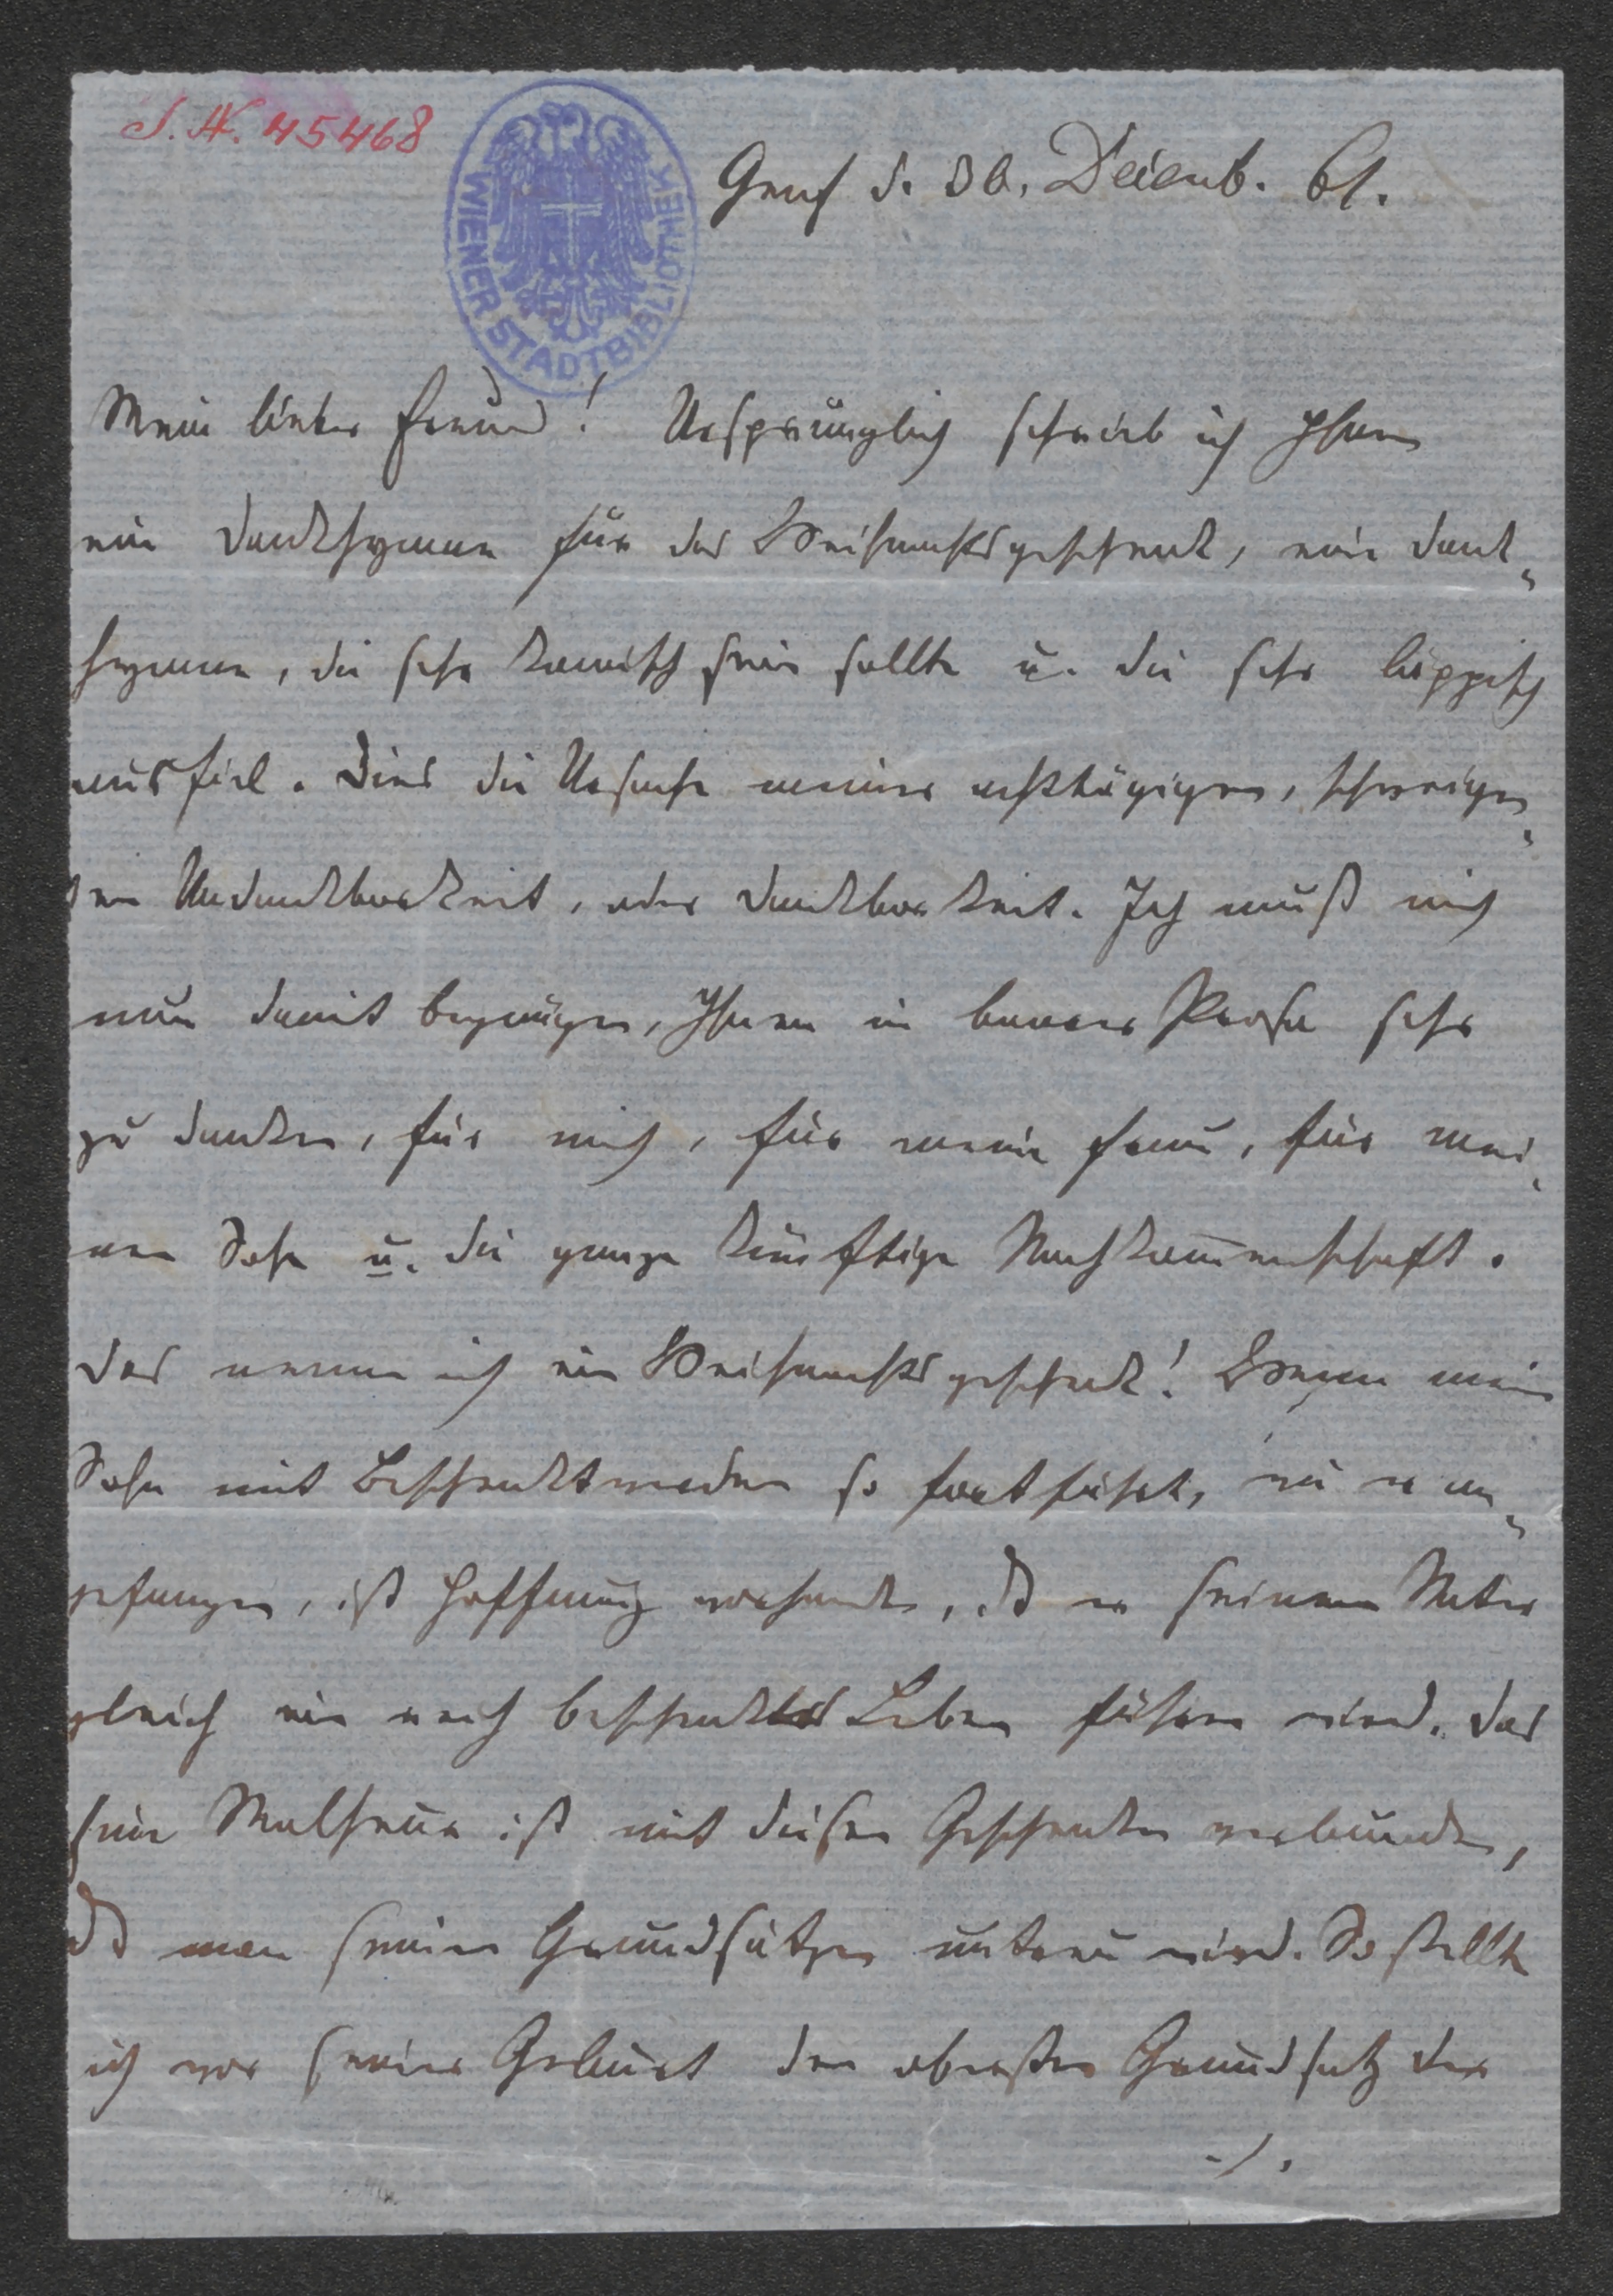 J. N. 45468
WIENER STADTBIBLIOTHEK
Genf d. 30. Dezemb. 61.
Mein lieber Freund! Ursprünglich schrieb ich Ihnen
eine Dankhymne für das Weihnachtsgeschenk, eine Dank-
hymne, die sehr komisch sein sollte u. die sehr läppisch
ausfiel. Dies die Ursache meiner achttägigen, schweigen-
den Undankbarkeit, oder Dankbarkeit. Ich muß mich
nun damit begnügen, Ihnen in baarer Prosa sehr
zu danken, für mich, für meine Frau, für mei-
nen Sohn u. die ganze künftige Nachkommenschaft.
Das nenne ich ein Weihnachtsgeschenk! Wenn mein
Sohn mit Beschenktwerden so fortfährt, wie er an-
gefangen, ist Hoffnung vorhanden, dß er seinem Vater
gleich ein reich beschenktes Leben führen wird. Das
eine Malheur ist mit diesen Geschenken verbunden,
dß man seinen Grundsätzen untreu wird. So stellte
ich vor seiner Geburt den obersten Grundsatz der
./.